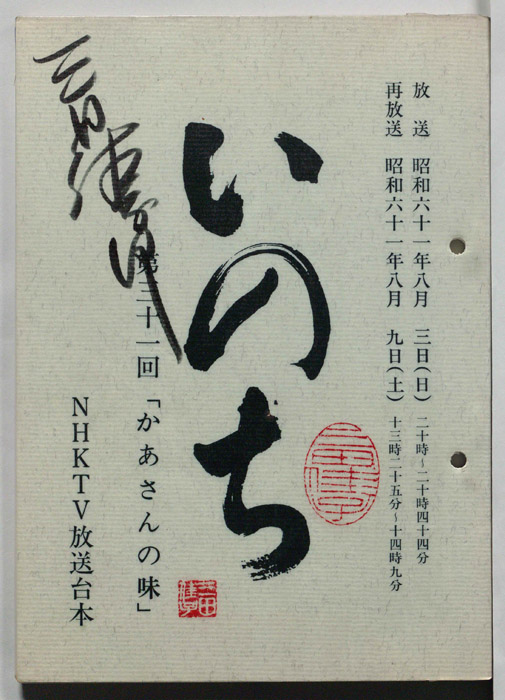 放　送　昭和六十一年八月　三日(日)　二十時～二十時四十四分
再放送　昭和六十一年八月　九日(土)　十三時二十五分～十四時九分
いのち
第三十一回「かあさんの味」
NHKTV放送台本